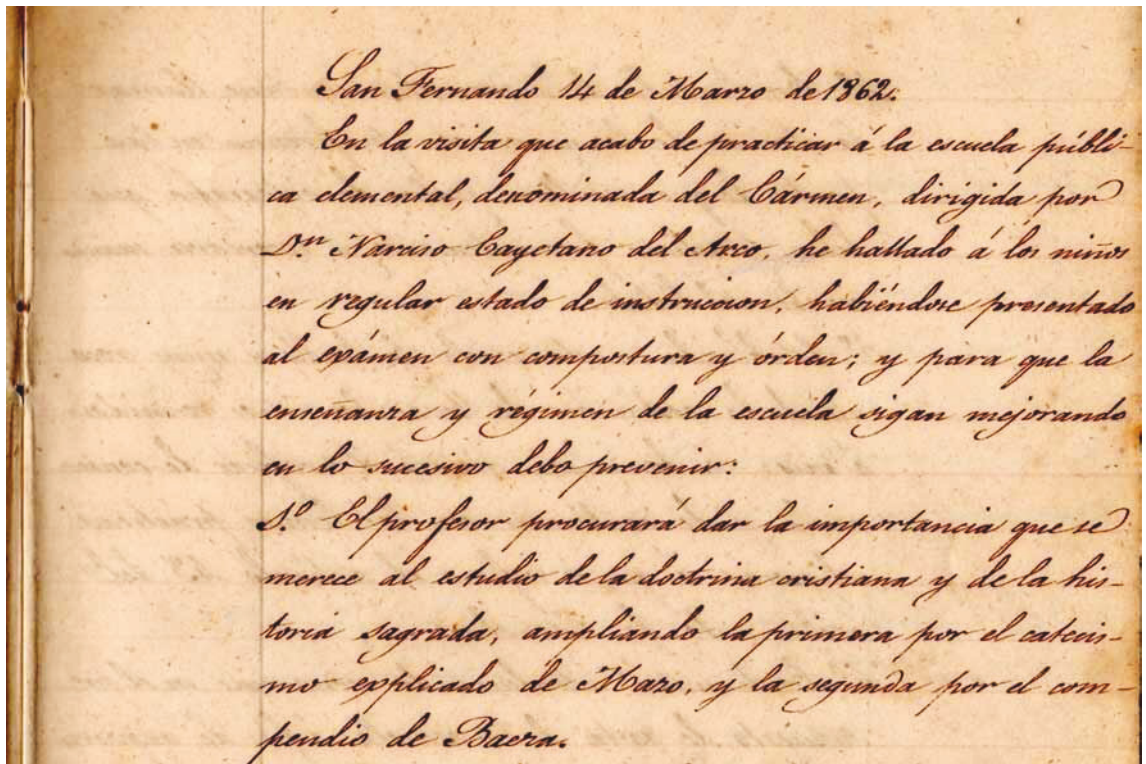 San Fernando 14 de Marzo de 1862.
En la visita que acabo de practicar á la escuela públi-
ca elemental, denominada del Cármen, dirigida por
Dn. Narciso Cayetano del Arco, he hallado á los niños
en regular estado de instruccion, habiéndose presentado
al exámen con compostura y órden; y para que la
enseñanza y régimen de la escuela sigan mejorando
en lo sucesivo debo prevenir:
1.º El profesor procurará dar la importancia que se
merece al estudio de la doctrina cristiana y de la his-
toria sagrada, ampliando la primera por el catecis-
mo explicado de Mazo, y la segunda por el com-
pendio de Baeza.